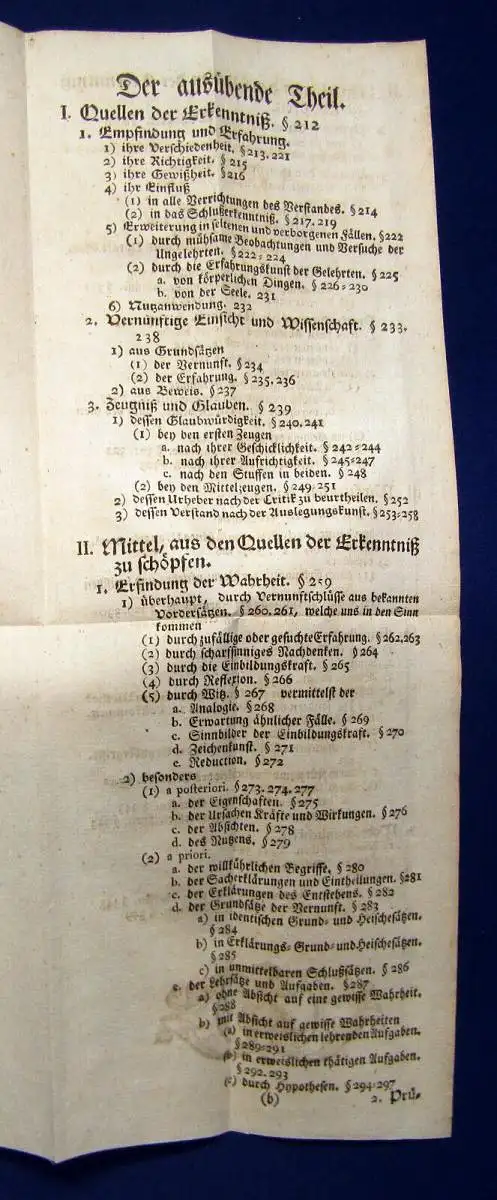 Der ausübende Theil.
I. Quellen der Erkenntniß. § 212
1. Empfindung und Erfahrung.
1) ihre Verschiedenheit. § 213. 221
2) ihre Richtigkeit. § 215
3) ihre Gewißheit. § 216
4) ihr Einfluß
(1) in alle Verrichtungen des Verstandes. § 214
(2) in das Schlußerkenntniß. § 217. 219
5) Erweiterung in seltenen und verborgenen Fällen. § 222
(1) durch mühsame Beobachtungen und Versuche der
Ungelehrten. § 222=224
(2) durch die Erfahrungskunst der Gelehrten. § 225
a. von körperlichen Dingen. § 226=230
b. von der Seele. 231
6) Nutzanwendung. 232
2. Vernünftige Einsicht und Wissenschaft. § 233.
238
1) aus Grundsätzen
(1) der Vernunft. § 234
(2) der Erfahrung. § 235. 236
2) aus Beweis. § 237
3. Zeugniß und Glauben. § 239
1) dessen Glaubwürdigkeit. § 240. 241
(1) bey den ersten Zeugen
a. nach ihrer Geschicklichkeit. § 242=244
b. nach ihrer Aufrichtigkeit. § 245=247
c. nach den Stuffen in beiden. § 248
(2) bey den Mittelzeugen. § 249=251
2) dessen Urheber nach der Critik zu beurtheilen. § 252
3) dessen Verstand nach der Auslegungskunst. § 253=258
II. Mittel, aus den Quellen der Erkenntniß
zu schöpfen.
1. Erfindung der Wahrheit. § 259
1) überhaupt, durch Vernunftschlüsse aus bekannten
Vordersätzen. § 260. 261, welche uns in den Sinn
kommen
(1) durch zufällige oder gesuchte Erfahrung. § 262. 263
(2) durch scharfsinniges Nachdenken. § 264
(3) durch die Einbildungskraft. § 265
(4) durch Reflexion. § 266
(5) durch Witz. § 267 vermittelst der
a. Analogie. § 268
b. Erwartung ähnlicher Fälle. § 269
c. Sinnbilder der Einbildungskraft. § 270
d. Zeichenkunst. § 271
e. Reduction. § 272
2) besonders
(1) a posteriori. § 273. 274. 277
a. der Eigenschaften. § 275
b. der Ursachen Kräfte und Wirkungen. § 276
c. der Absichten. § 278
d. des Nutzens. § 279
(2) a priori.
a. der willkührlichen Begriffe. § 280
b. der Sacherklärungen und Eintheilungen. § 281
c. der Erklärungen des Entstehens. § 282
d. der Grundsätze der Vernunft. § 283
a) in identischen Grund= und Heischesätzen.
§ 284
b) in Erklärungs= Grund= und Heischesätzen.
§ 285
c) in unmittelbaren Schlußsätzen. § 286
e. der Lehrsätze und Aufgaben. § 287
a) ohne Absicht auf eine gewisse Wahrheit.
§ 288
b) mit Absicht auf gewisse Wahrheiten
(a) in erweislichen lehrenden Aufgaben.
§ 289=291
(b) in erweislichen thätigen Aufgaben.
§ 292. 293
(c) durch Hypothesen. § 294=297
(b) 2. Prü=